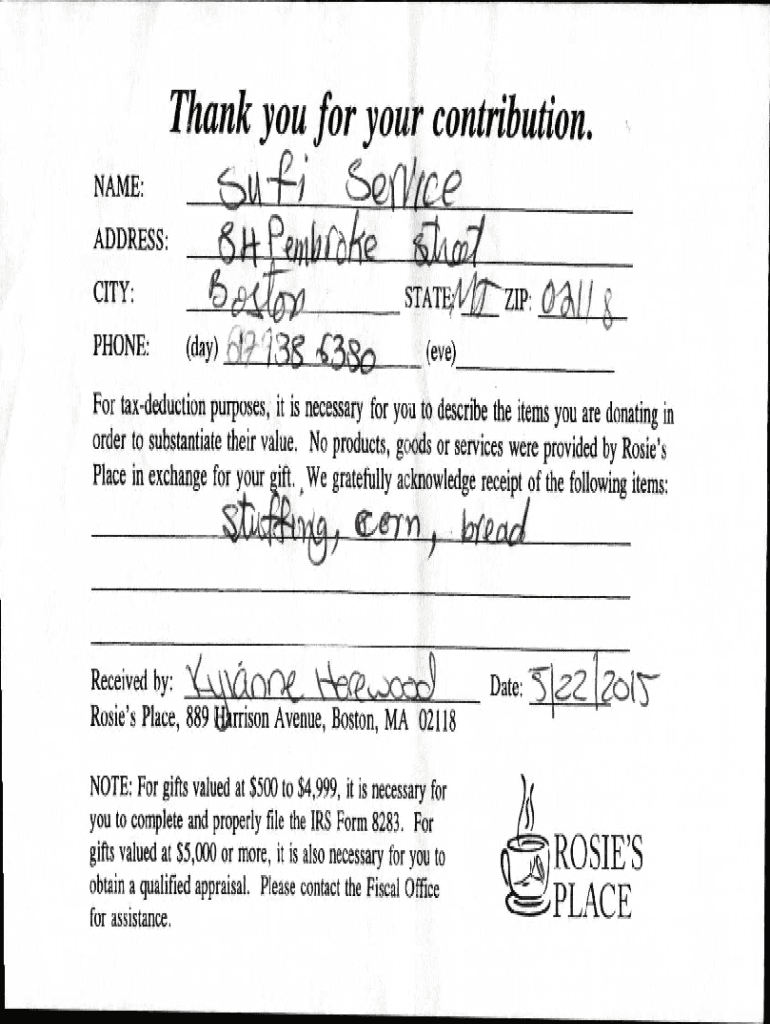 Thank you for your contribution.
NAME: Sufi Service
ADDRESS: 84 Pembroke Street
CITY: Boston STATE: ZIP: 02118
PHONE: (day) 38 6380 (eve)
For tax-deduction purposes, it is necessary for you to describe the items you are donating in
order to substantiate their value. No products, goods or services were provided by Rosie's
Place in exchange for your gift. We gratefully acknowledge receipt of the following items:
Stuffing, corn, bread
Received by: Date: 5/22/2015
Rosie's Place, 889 Harrison Avenue, Boston, MA 02118
NOTE: For gifts valued at $500 to $4,999, it is necessary for
you to complete and properly file the IRS Form 8283. For
gifts valued at $5,000 or more, it is also necessary for you to
obtain a qualified appraisal. Please contact the Fiscal Office
for assistance.
ROSIE'S
PLACE